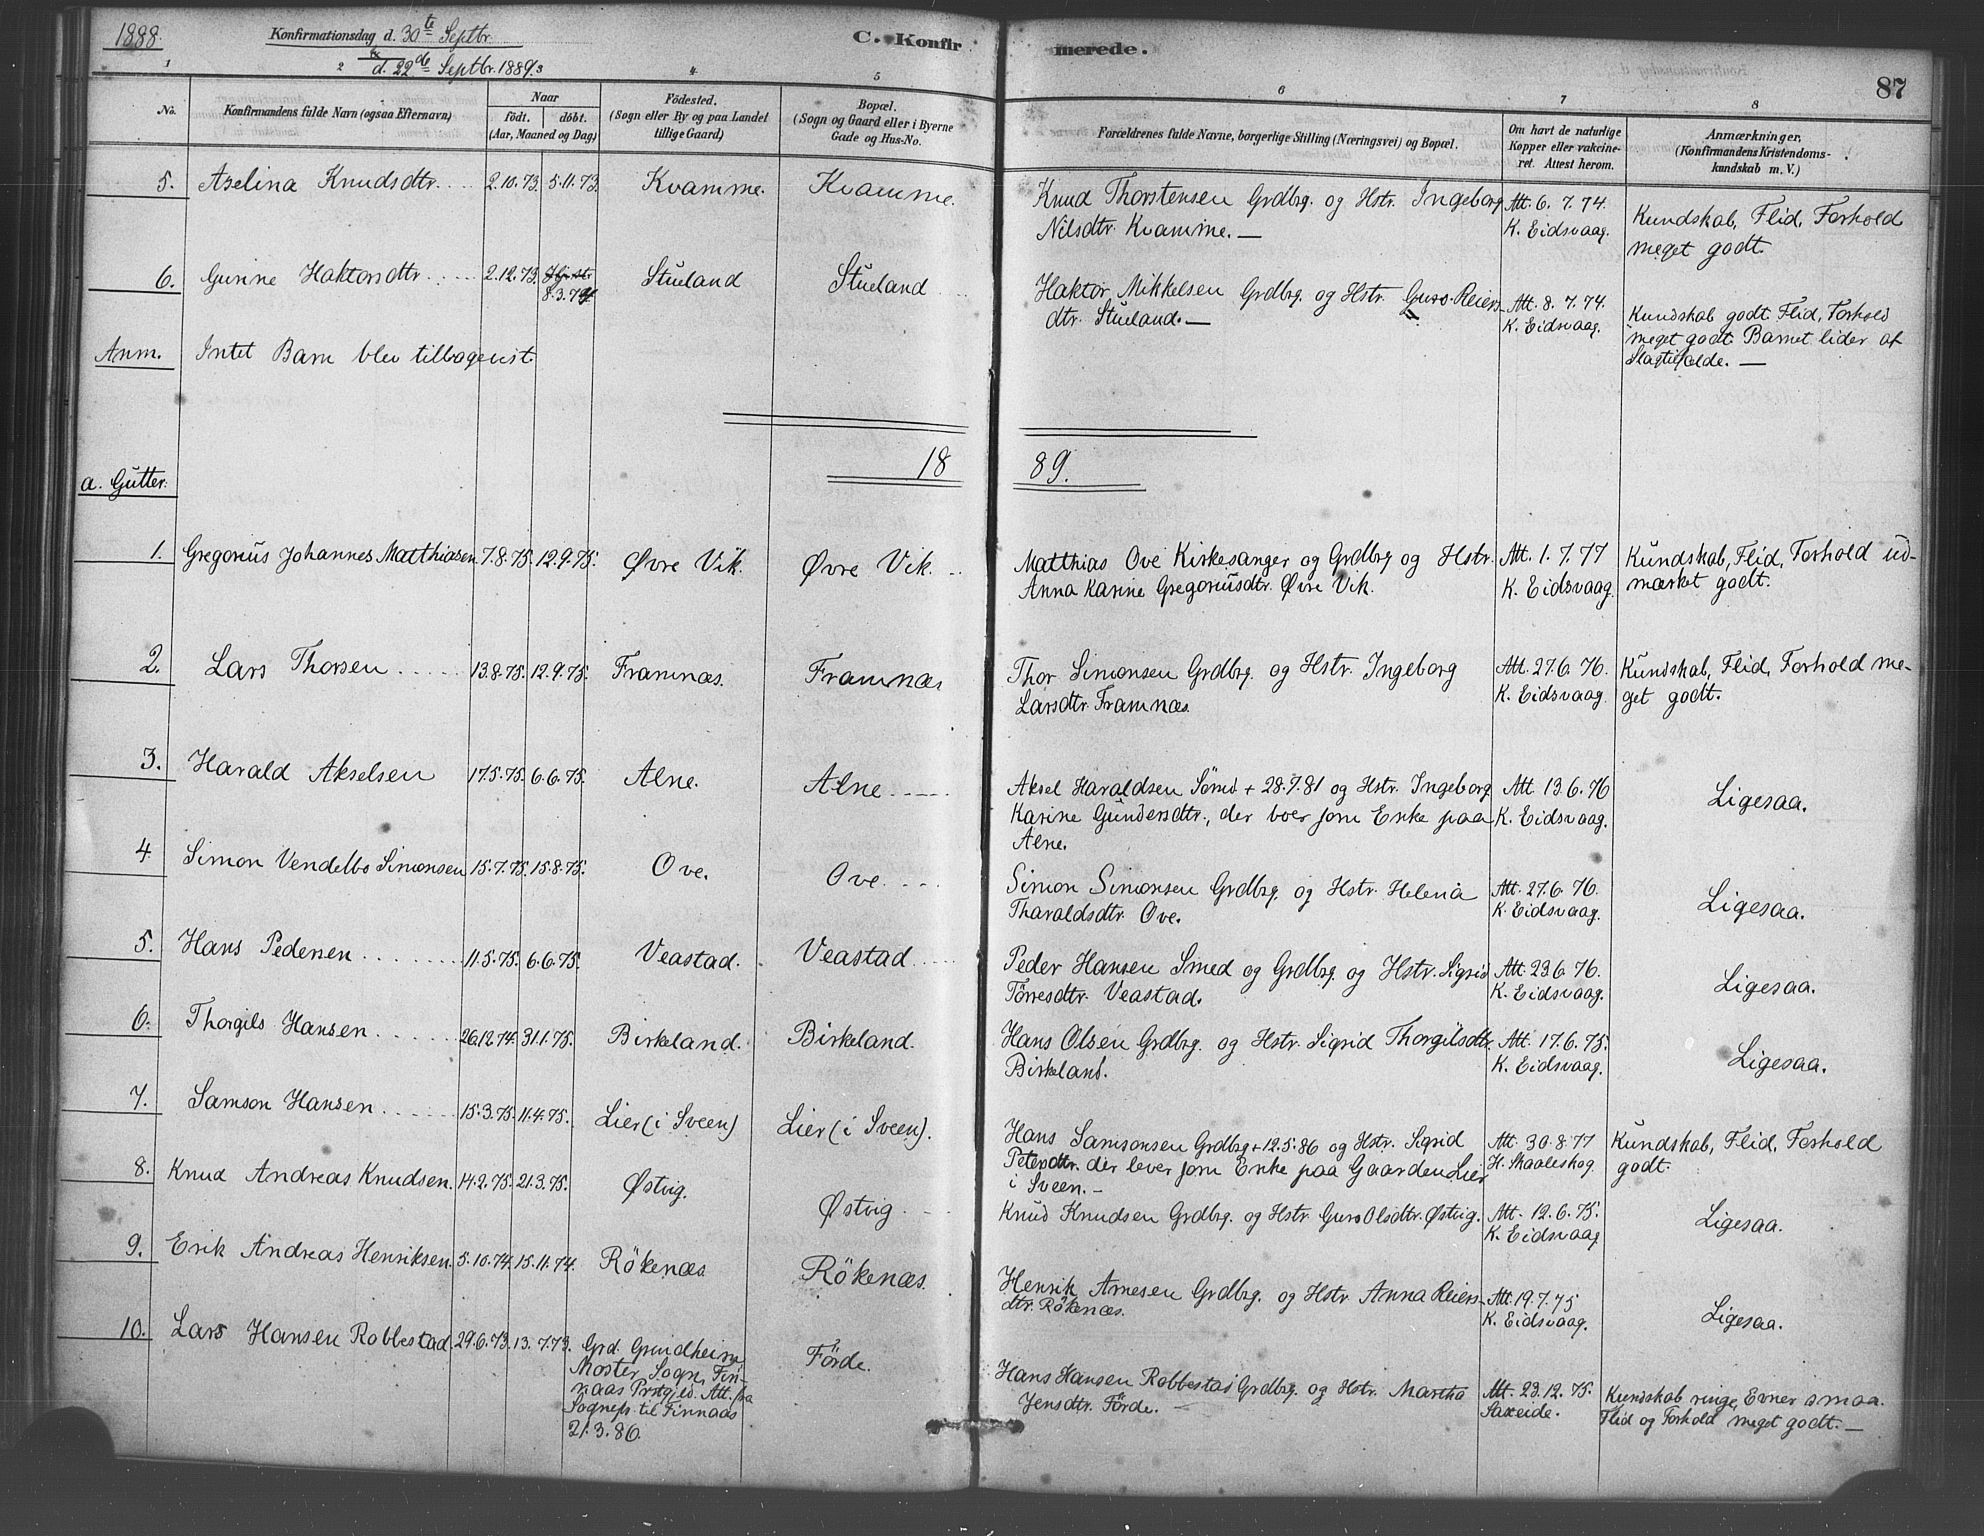 1888.
Konfirmationsdag d. 30te Septbr.
d. 22de Septbr. 1889.
C. Konfirmerede.
87
1 2 3 4 5 6 7 8
No.
Konfirmandens fulde Navn (ogsaa Efternavn)
Naar
födt. döbt.
(Aar, Maaned og Dag)
Födested.
(Sogn eller By og paa Landet
tillige Gaard)
Bopæl.
(Sogn og Gaard eller i Byerne
Gade og Hus-No.
Forældrenes fulde Navne, borgerlige Stilling (Næringsvei) og Bopæl.
Om havt de naturlige
Kopper eller vakcine-
ret. Attest herom.
Anmærkninger,
(Konfirmandens Kristendoms-
kundskab m. V.)
5. Aselina Knudsdtr. 2.10.73. 5.11.73. Kvamme. Kvamme.
Knud Thorstensen Grdbrg. og Hstr. Ingeborg
Nilsdtr. Kvamme. —
Att. 6. 7. 74.
K. Eidsvaag.
Kundskab, Flid, Forhold
meget godt.
6. Gurine Haktorsdtr. 2.12.73. 8.3.74 Stueland Stueland
Haktor Mikkelsen Grdbrg. og Hstr. Guro Reiers-
dtr. Stueland. —
Att. 8. 7. 74.
K. Eidsvaag.
Kundskab godt. Flid, Forhold
meget godt. Barnet lider af
Slagtilfælde. —
Anm. Intet Barn blev tilbagevist.
18 89.
a. Gutter.
1. Gregorius Johannes Matthiasen 7.8.75. 12.9.75. Øvre Vik. Øvre Vik.
Matthias Ove Kirkesanger og Grdbrg og Hstr.
Anna Karine Gregoriusdtr. Øvre Vik.
Att. 1. 7. 77
K. Eidsvaag.
Kundskab, Flid, Forhold ud-
mærket godt.
2. Lars Thorsen 13.8.75. 12.9.75. Framnæs. Framnæs
Thor Simonsen Grdbrg. og Hstr. Ingeborg
Larsdtr. Framnæs.
Att. 27. 6. 76.
K. Eidsvaag.
Kundskab, Flid, Forhold me-
get godt.
3. Harald Akselsen 17.5.75. 6.6.75. Alne. Alne
Aksel Haraldsen + 28.7.81 og Hstr. Ingeborg
Karine Gundersdtr., der boer som Enke paa
Alne.
Att. 13. 6. 76
K. Eidsvaag.
Ligesaa.
4 Simon Vendelbo Simonsen 15.7.75. 15.8.75. Ove. Ove.
Simon Simonsen Grdbrg. og Hstr. Helena
Tharaldsdtr. Ove.
Att. 27. 6. 76.
K. Eidsvaag.
Ligesaa.
5. Hans Pedersen 11.5.75. 6.6.75. Veastad. Veastad
Peder Hansen Smed og Grdbrg. og Hstr. Sigrid
Törresdtr. Veastad.
Att. 23.6. 76.
K. Eidsvaag.
Ligesaa.
6. Thorgils Hansen 26.12.74. 31.1.75. Birkeland. Birkeland.
Hans Olsen Grdbrg. og Hstr. Sigrid Thorgilsdtr.
Birkeland.
Att. 17. 6. 75.
K. Eidsvaag.
Ligesaa.
7. Samson Hansen 15.3.75. 11.4.75. Lier (i Sveen) Lier (i Sveen).
Hans Samsonsen Grdbrg + 12.5.86 og Hstr. Sigrid
Petersdtr. der lever som Enke paa Gaarden Lier
i Sveen. —
Att. 30. 8. 77
H. Skaaleskog.
Kundskab, Flid, Forhold
godt.
8. Knud Andreas Knudsen. 14.2.75. 21.3.75. Østvig. Østvig
Knud Knudsen Grdbrg. og Hstr. Guro Olsdtr. Østvig.
Att. 12. 6. 75.
K. Eidsvaag.
Ligesaa.
9. Erik Andreas Henriksen 5.10.74. 15.11.74. Rökenæs Rökenæs.
Henrik Arnesen Grdbrg. og Hstr. Anna Reiers-
dtr. Rökenæs.
Att. 19. 7. 75
K. Eidsvaag.
Ligesaa.
10. Lars Hansen Robbestad. 29.6.73. 13. 7.73. Grd. Grindheim Förde.
Moster Sogn, Fin-
naas Prstgjld. Att. fra
Sognepr. til Finnaas
21.3.86.
Hans Hansen Robbestad Grdbrg. og Hstr. Martha
Jensdtr. Förde. —
Att. 23. 12. 75.
Saxeide.
Kundskab ringe, Evner smaa.
Flid og Forhold meget godt. —